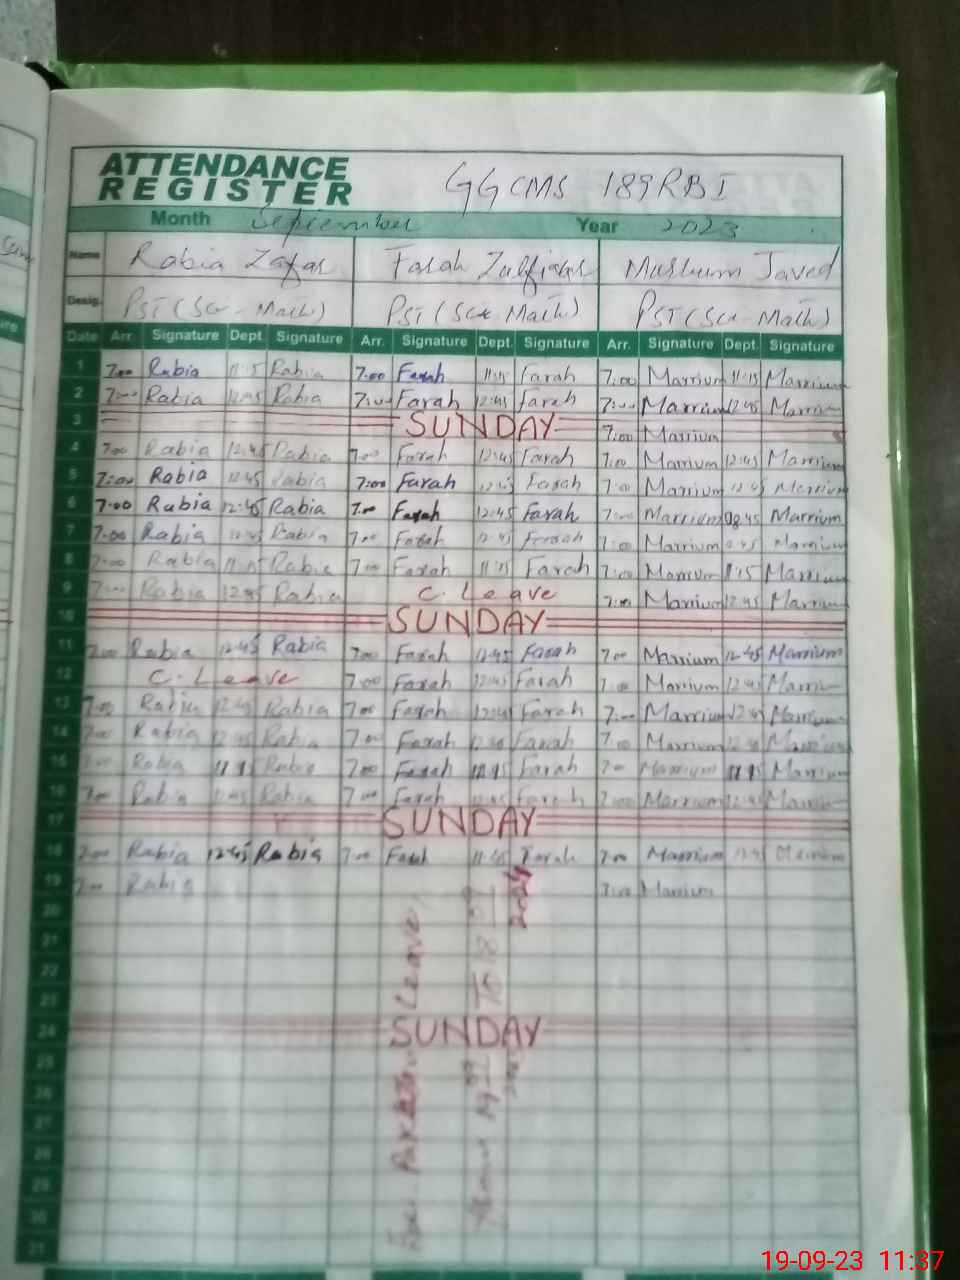 ATTENDANCE
REGISTER
GGCMS 189RBI
Month September Year 2023
Name Rabia Zafar Farah Zulfiqar Javed
Desig. PST (Sci - Math) PST (Sci - Math) PST (Sci - Math)
Date Arr. Signature Dept. Signature Arr. Signature Dept. Signature Arr. Signature Dept. Signature
1 7:00 Rabia 11:15 Rabia 7:00 Farah 11:15 Farah 7:00 Marrium 11:15 Marrium
2 7:00 Rabia 12:45 Rabia 7:00 Farah 12:45 Farah 7:00 Marrium 12:45 Marrium
3 SUNDAY 7:00 Marrium
4 7:00 Rabia 12:45 Rabia 7:00 Farah 12:45 Farah 7:00 Marrium 12:45 Marrium
5 7:00 Rabia 12:45 Rabia 7:00 Farah 12:45 Farah 7:00 Marrium 12:45 Marrium
6 7:00 Rabia 12:45 Rabia 7:00 Farah 12:45 Farah 7:00 Marrium Marrium
7 7:00 Rabia 12:45 Rabia 7:00 Farah 12:45 Farah 7:00 Marrium Marrium
8 7:00 Rabia 11:15 Rabia 7:00 Farah 11:15 Farah 7:00 Marrium 11:15 Marrium
9 7:00 Rabia 12:45 Rabia C. Leave 7:00 Marrium 12:45 Marrium
10 SUNDAY
11 7:00 Rabia 12:45 Rabia 7:00 Farah 12:45 Farah 7:00 Marrium 12:45 Marrium
12 C. Leave 7:00 Farah 12:45 Farah 7:00 Marrium 12:45 Marrium
13 7:00 Rabia 12:45 Rabia 7:00 Farah 12:45 Farah 7:00 Marrium 12:45 Marrium
14 7:00 Rabia 12:45 Rabia 7:00 Farah Farah 7:00 Marrium 12:45 Marrium
15 7:00 Rabia 11:15 Rabia 7:00 Farah 11:15 Farah 7:00 Marrium 11:15 Marrium
16 7:00 Rabia 12:45 Rabia 7:00 Farah 12:45 Farah 7:00 Marrium 12:45 Marrium
17 SUNDAY
18 7:00 Rabia 12:45 Rabia 7:00 Farah Farah 7:00 Marrium 12:45 Marrium
19 7:00 Rabia 7:00 Marrium
20
21
22
23
24 SUNDAY
25
26
27
28
29
30
31
Leave
19-09-23 11:37